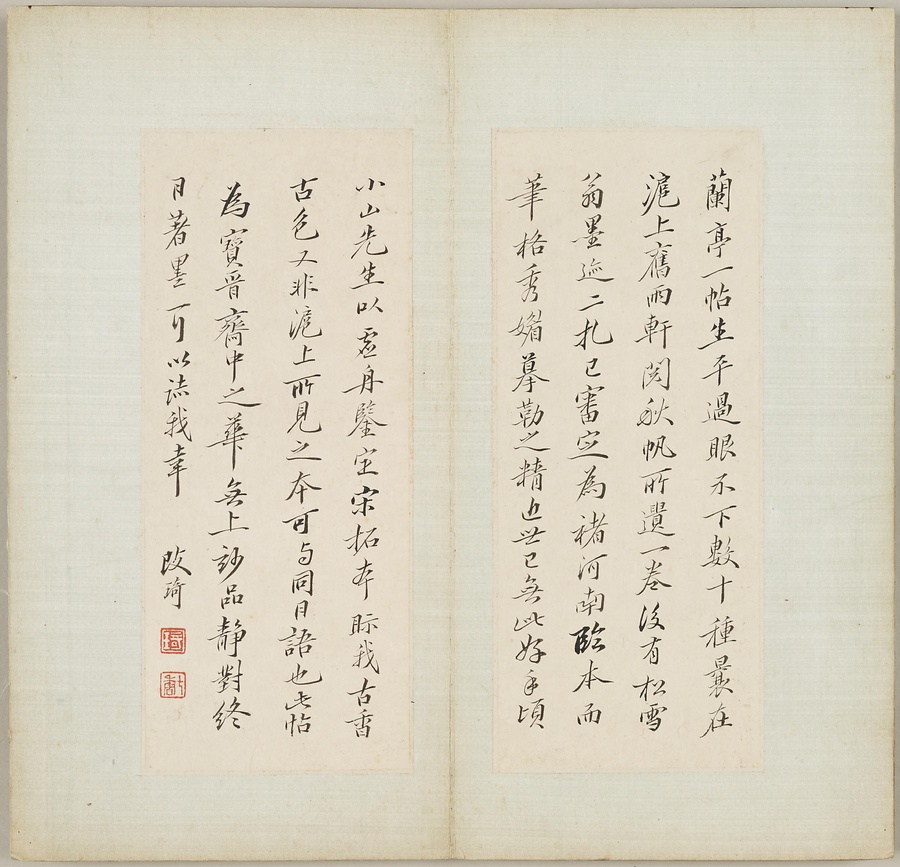 蘭亭一帖生平過眼不下數十種曩在
滬上舊雨軒閱秋帆所遺一卷後有松雪
翁墨迹二札已審定為褚河南臨本而
筆格秀媚摹勒之精近世已無此好手頃
小山先生以虛舟鑒定宋拓本眎我古香
古色又非滬上所見之本可与同日語也此帖
為寶晉齋中之華無上妙品靜對終
日著墨一行以誌我幸
改琦